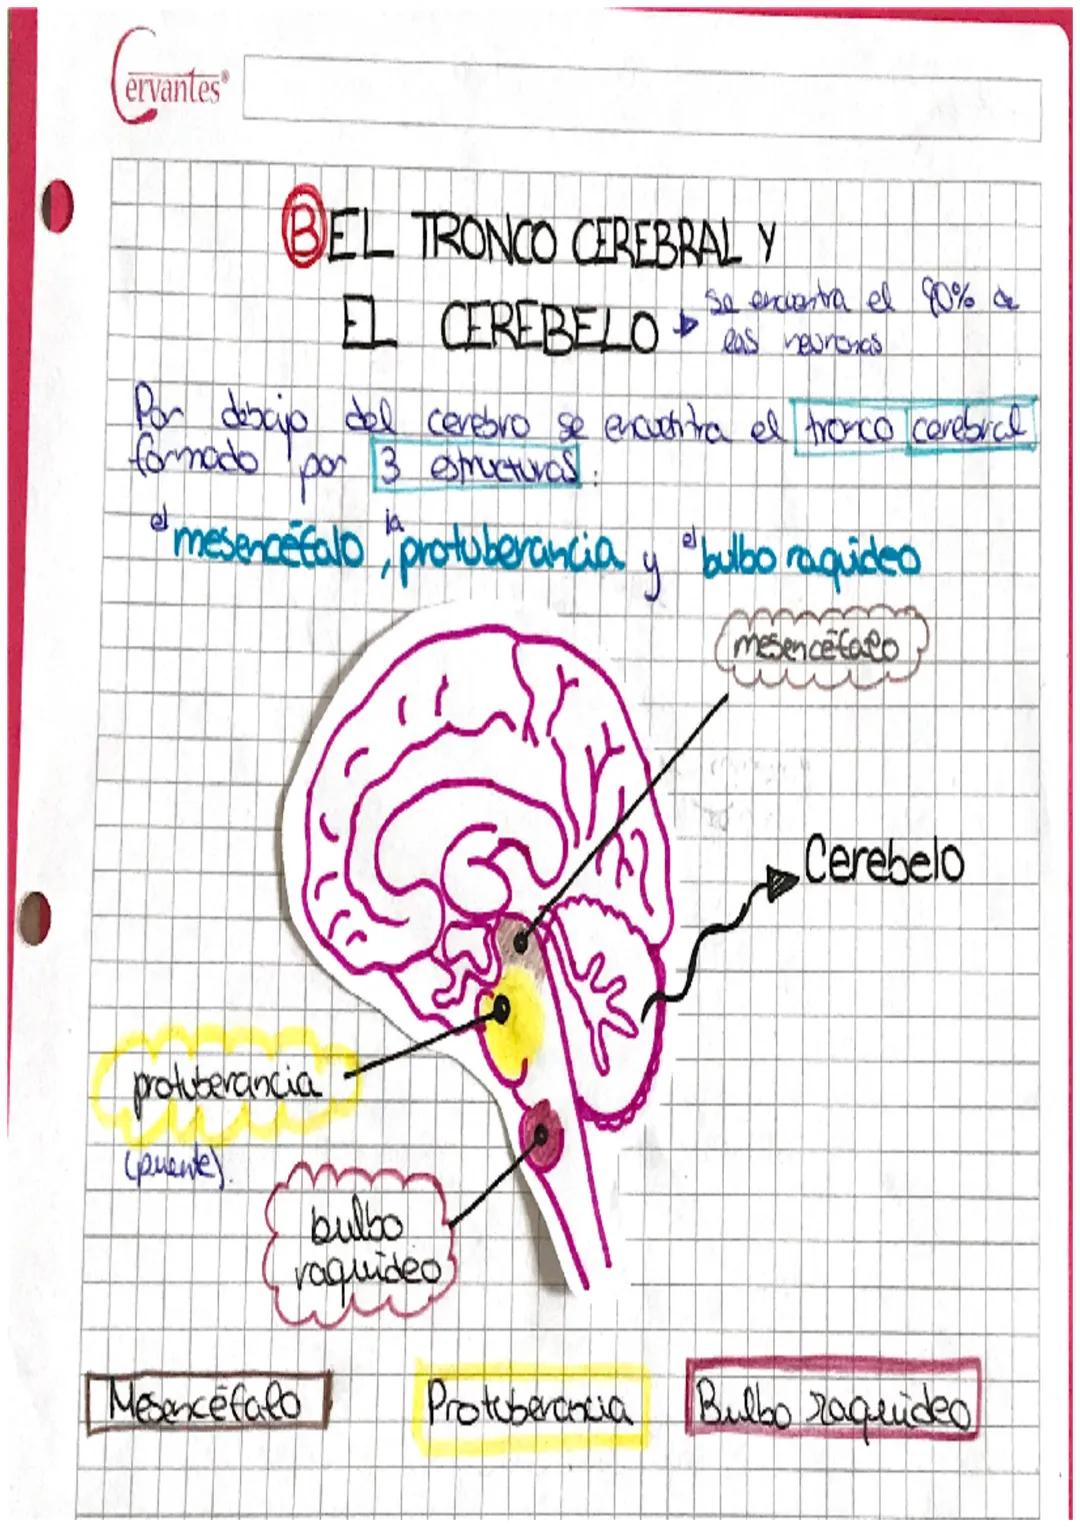 Cervantes®
B EL TRONCO CEREBRAL Y
EL CEREBELO → se encuentra el 90% de
las neuronas
Por debajo del cerebro se encuentra el tronco cerebral
formado por 3 estructuras:
el mesencéfalo, la protuberancia y el bulbo raquídeo
mesencéfalo
Cerebelo
protuberancia
(puente).
bulbo
raquídeo
Mesencéfalo Protuberancia Bulbo raquídeo